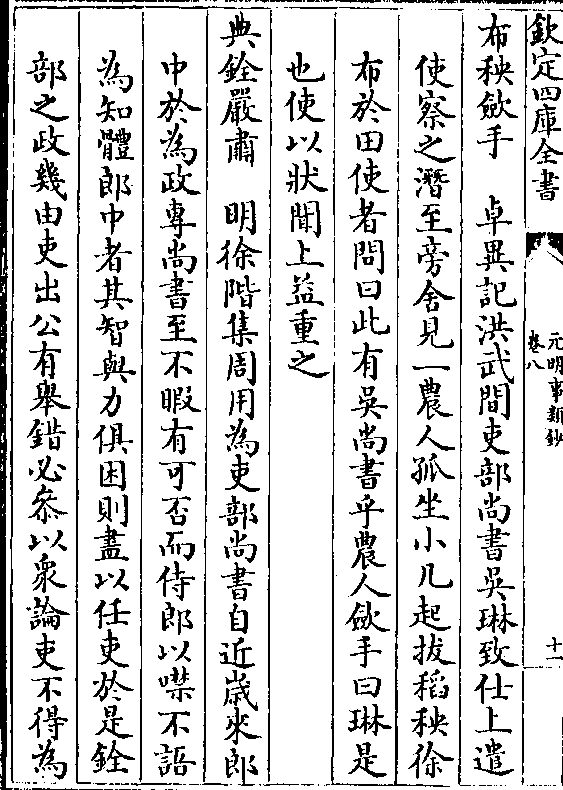 欽定四庫全書
元明事類鈔
卷八
十一
布秧斂手　卓異記洪武間吏部尚書吳琳致仕上遣
使察之潛至旁舍見一農人孤坐小几起拔稻秧徐
布於田使者問曰此有吳尚書乎農人斂手曰琳是
也使以狀聞上益重之
典銓嚴肅　明徐階集周用為吏部尚書自近歲來郎
中於為政專尚書至不暇有可否而侍郎以噤不語
為知體郎中者其智與力俱困則盡以任吏於是銓
部之政幾由吏出公有舉錯必參以衆論吏不得為